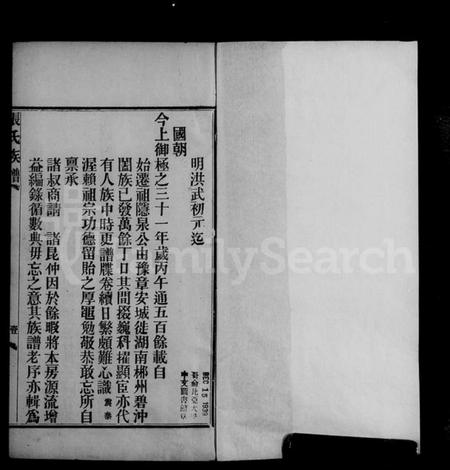 明洪武初元迄
國朝
今上御極之三十一年歲丙午通五百餘載自
始遷祖隱泉公由豫章安城徙湖南郴州碧沖
闔族已發萬餘丁口其間掇巍科擢顯宦亦代
有人族中時更譜牒卷續日繁頗難心識 裔泰
渥賴祖宗功德留貽之厚黽勉敬恭敢忘所自
禀承
諸叔商請 諸昆仲因於餘暇將本房源流增
益編錄循數典毋忘之意其族譜老序亦輯為
張氏族譜
壹
DEC 15 1939
FamilySearch